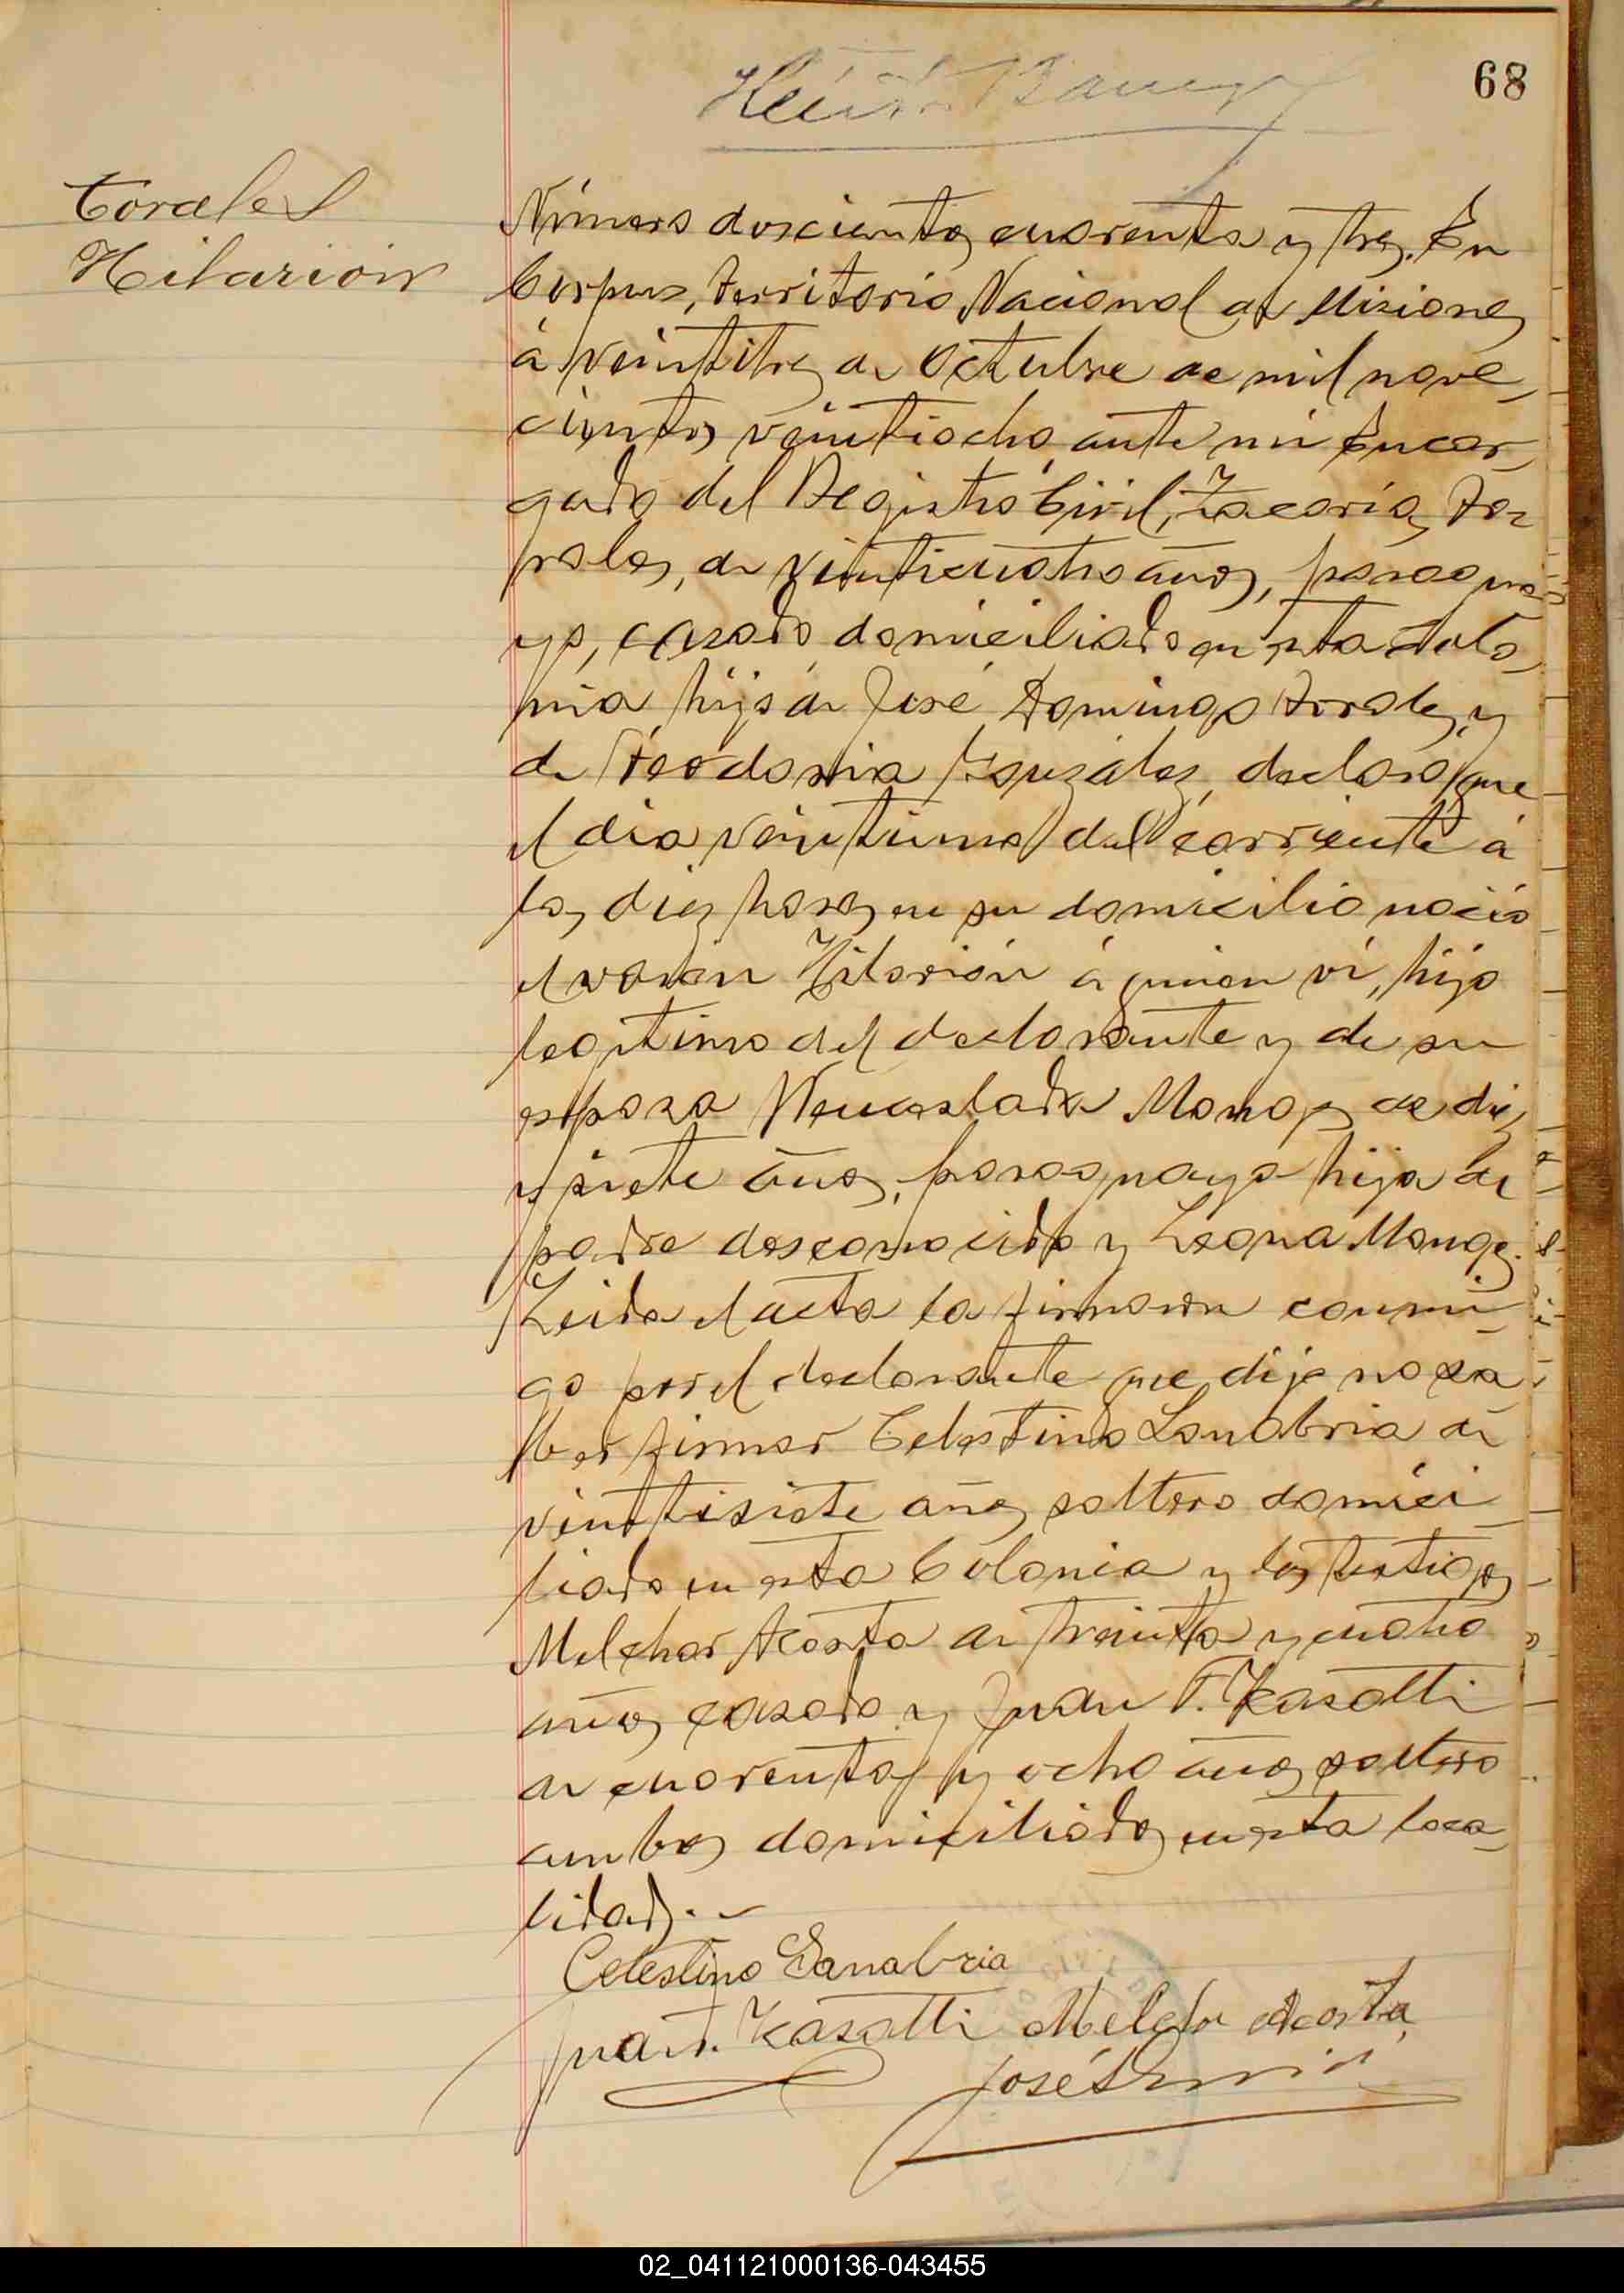 68
Torales
Hilarión
Número doscientos cuarenta y tres. En
Corpus, Territorio Nacional de Misiones
á veintitres de Octubre de mil nove-
cientos veintiocho, ante mi Encar-
gado del Registro Civil, Zacarías To-
rales, de veinticuatro años, paragua-
yo, casado domiciliado en esta Colo-
nia hijo de José Domingo Torales y
de Teodosia González, declaró que
el dia veintiuno del corriente á
las diez horas en su domicilio nació
el varón Hilarión á quien ví, hijo
legítimo del declarante y de su
esposa Wenceslada Monges de diez
y siete años, paraguaya hija de
padre desconocido y Leona Monges.
Leida el acta la firmaron conmi-
go por el declarante que dijo no sa-
ber firmar Celestino Sanabria de
veintisiete años soltero domici-
liado en esta Colonia y los testigos
Melchor Acosta de treinta y cuatro
años casado y Juan T. Kasatti
de cuarenta y ocho años soltero
ambos domiciliados en esta loca-
lidad.-
Celestino Sanabria
Juan T. Kasatti Melchor Acosta
José
02_041121000136-043455